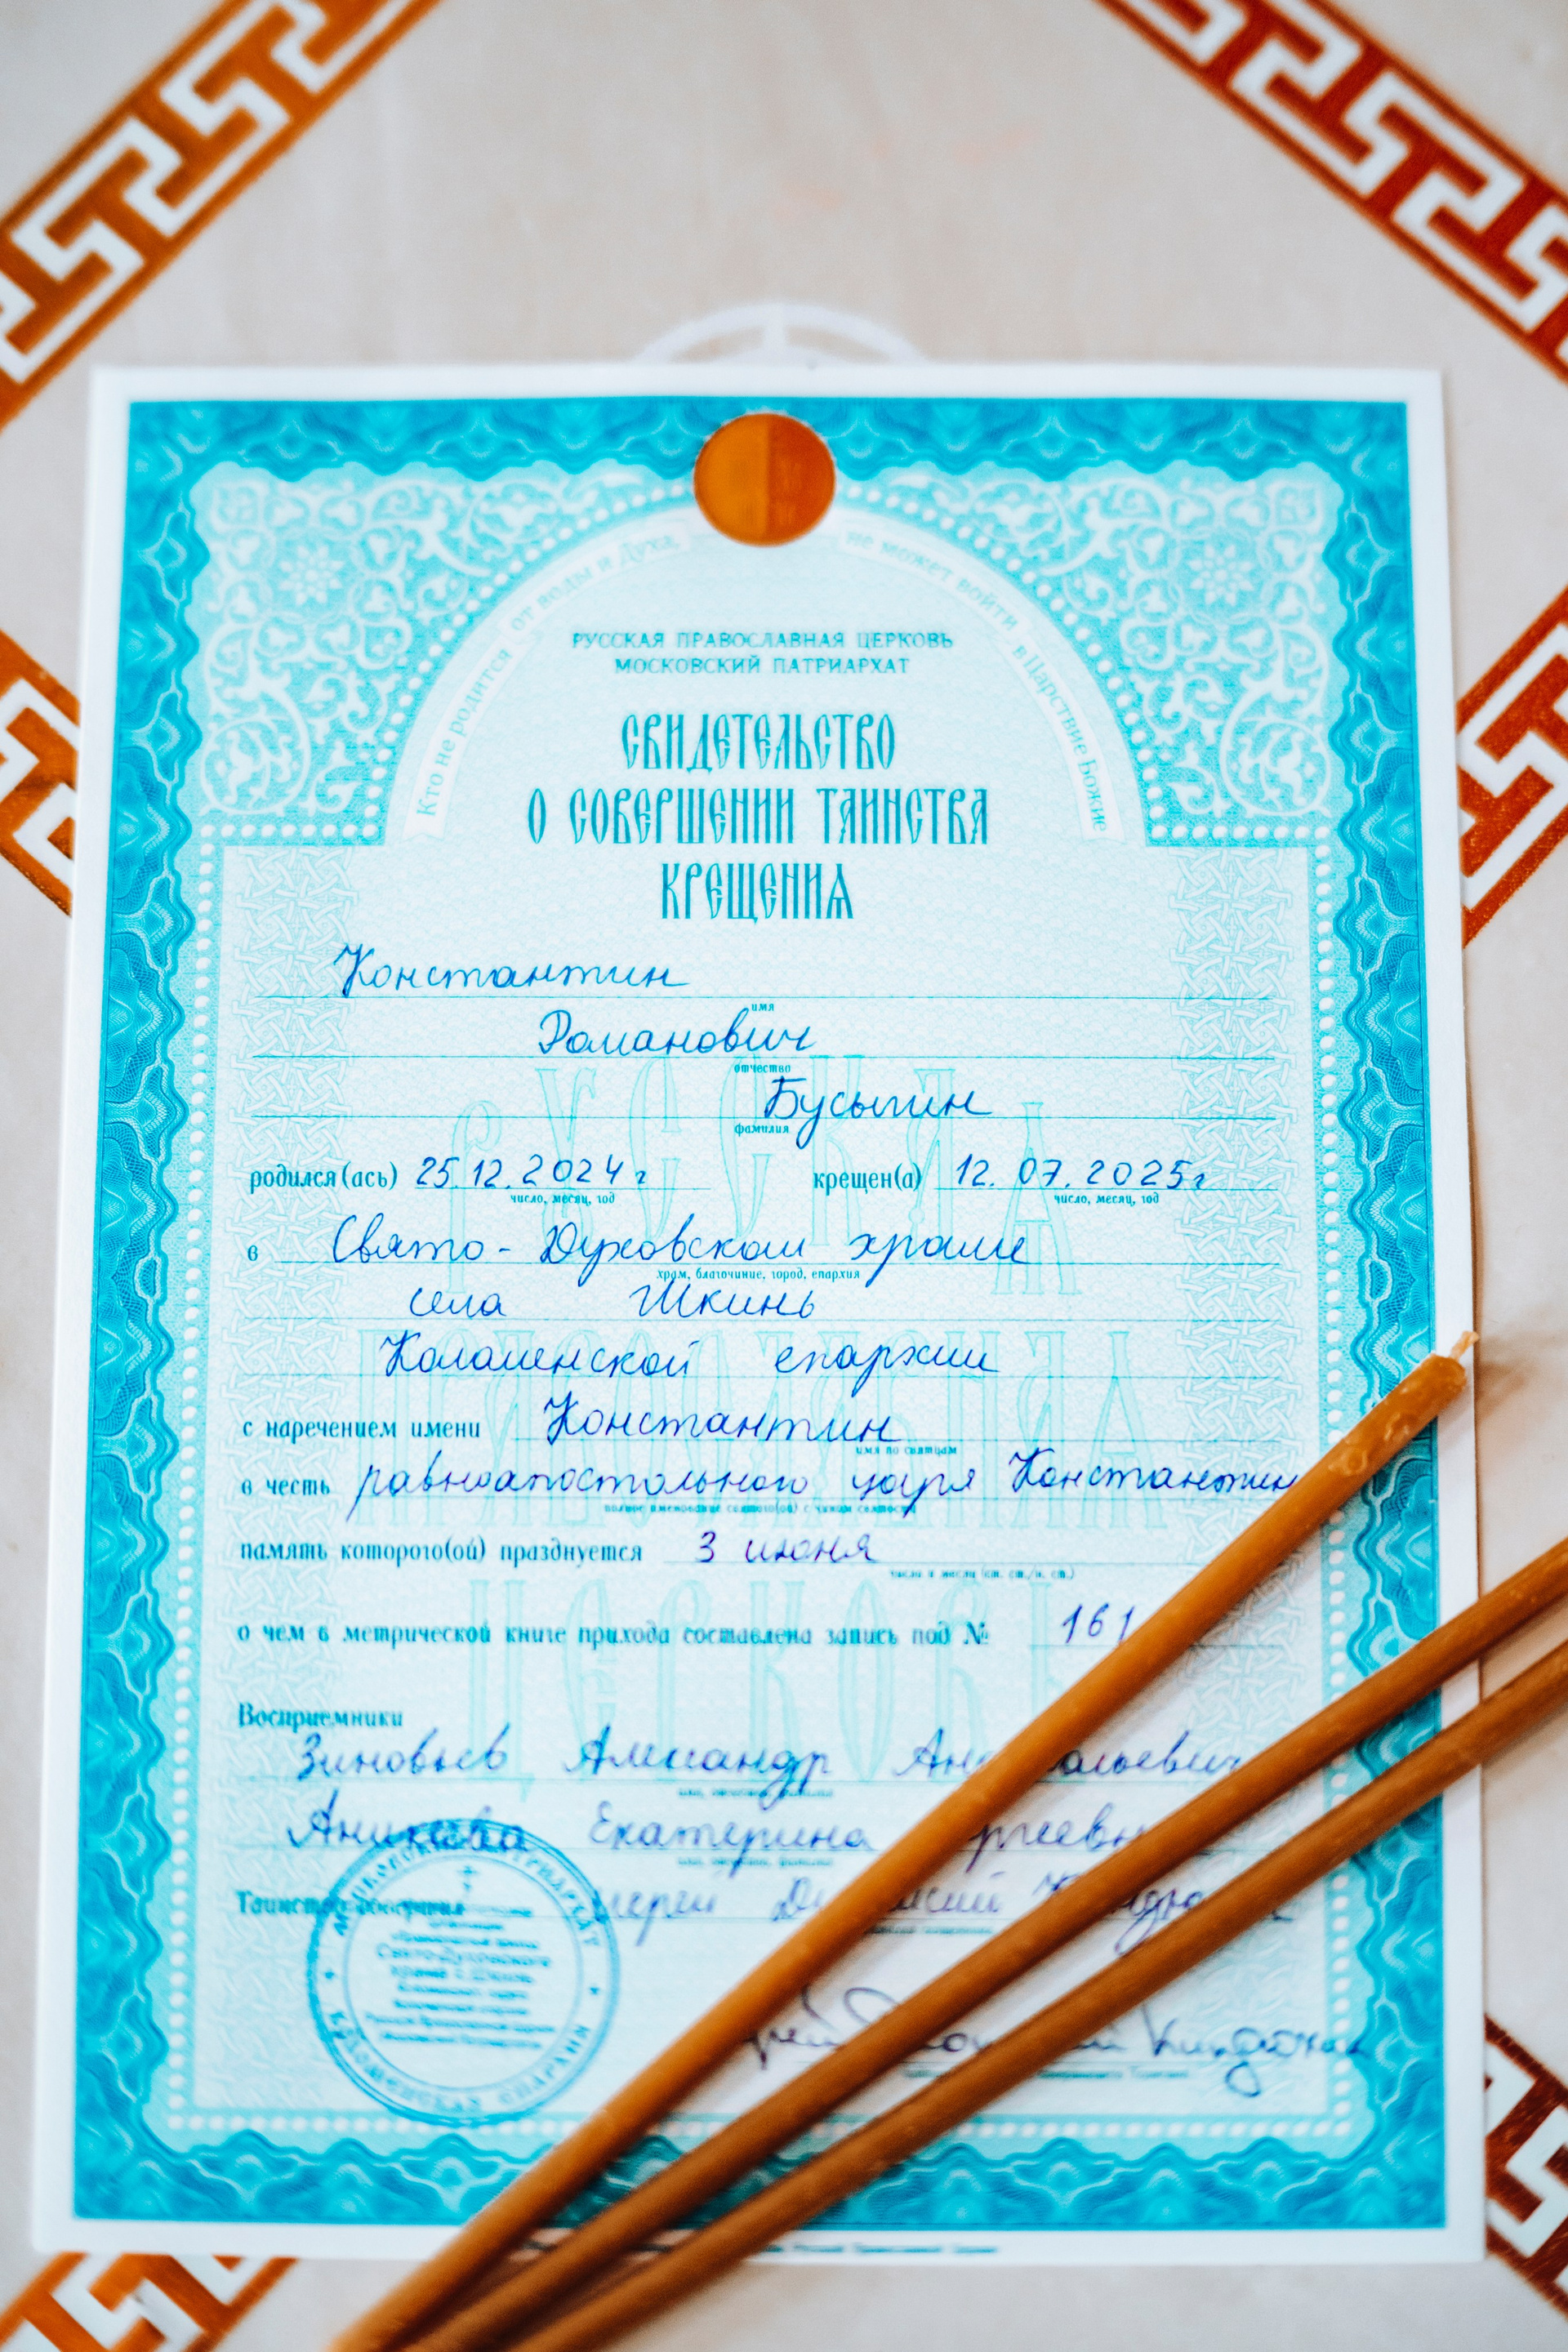 Кто не родится от воды и Духа, не может войти в Царствие Божие
РУССКАЯ ПРАВОСЛАВНАЯ ЦЕРКОВЬ
МОСКОВСКИЙ ПАТРИАРХАТ
СВИДЕТЕЛЬСТВО
О СОВЕРШЕНИИ ТАИНСТВА
КРЕЩЕНИЯ
Константин
имя
Романович
отчество
Бусыгин
фамилия
родился(ась) 25.12.2024 г крещен(а) 12.07.2025 г
число, месяц, год число, месяц, год
в Свято-Духовском храме
храм, благочиние, город, епархия
села Шкинь
Коломенской епархии
с наречением имени Константин
имя по святцам
в честь равноапостольного царя Константин
полное именование святого(ой) с чином святости
память которого(ой) празднуется 3 июня
число и месяц (ст. ст./н. ст.)
о чем в метрической книге прихода составлена запись под № 161
Восприемники
Зиновьев Александр
Екатерина
Таинство совершил иерей
МОСКОВСКИЙ ПАТРИАРХАТ
Свято-Духовского
храма с. Шкинь
КОЛОМЕНСКАЯ ЕПАРХИЯ
РУССКАЯ
ПРАВОСЛАВНАЯ
ЦЕРКОВЬ